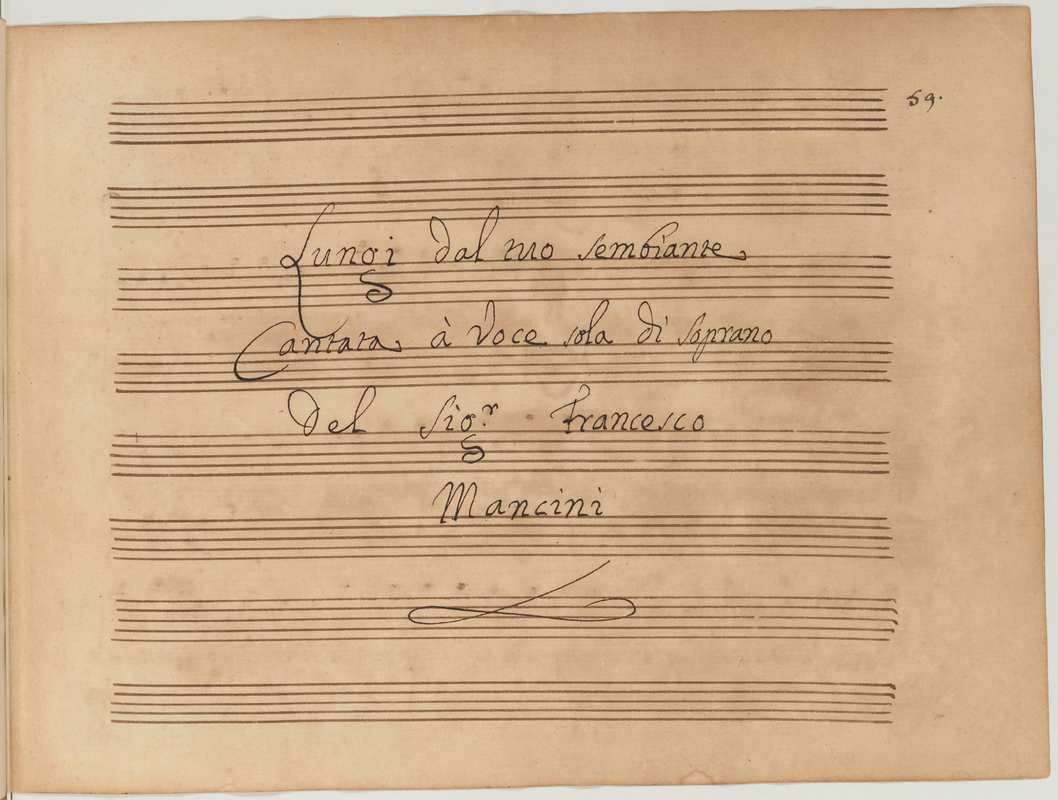 59.
Lungi dal tuo sembiante
Cantata à Voce sola di soprano
Del Sig.r Francesco
Mancini